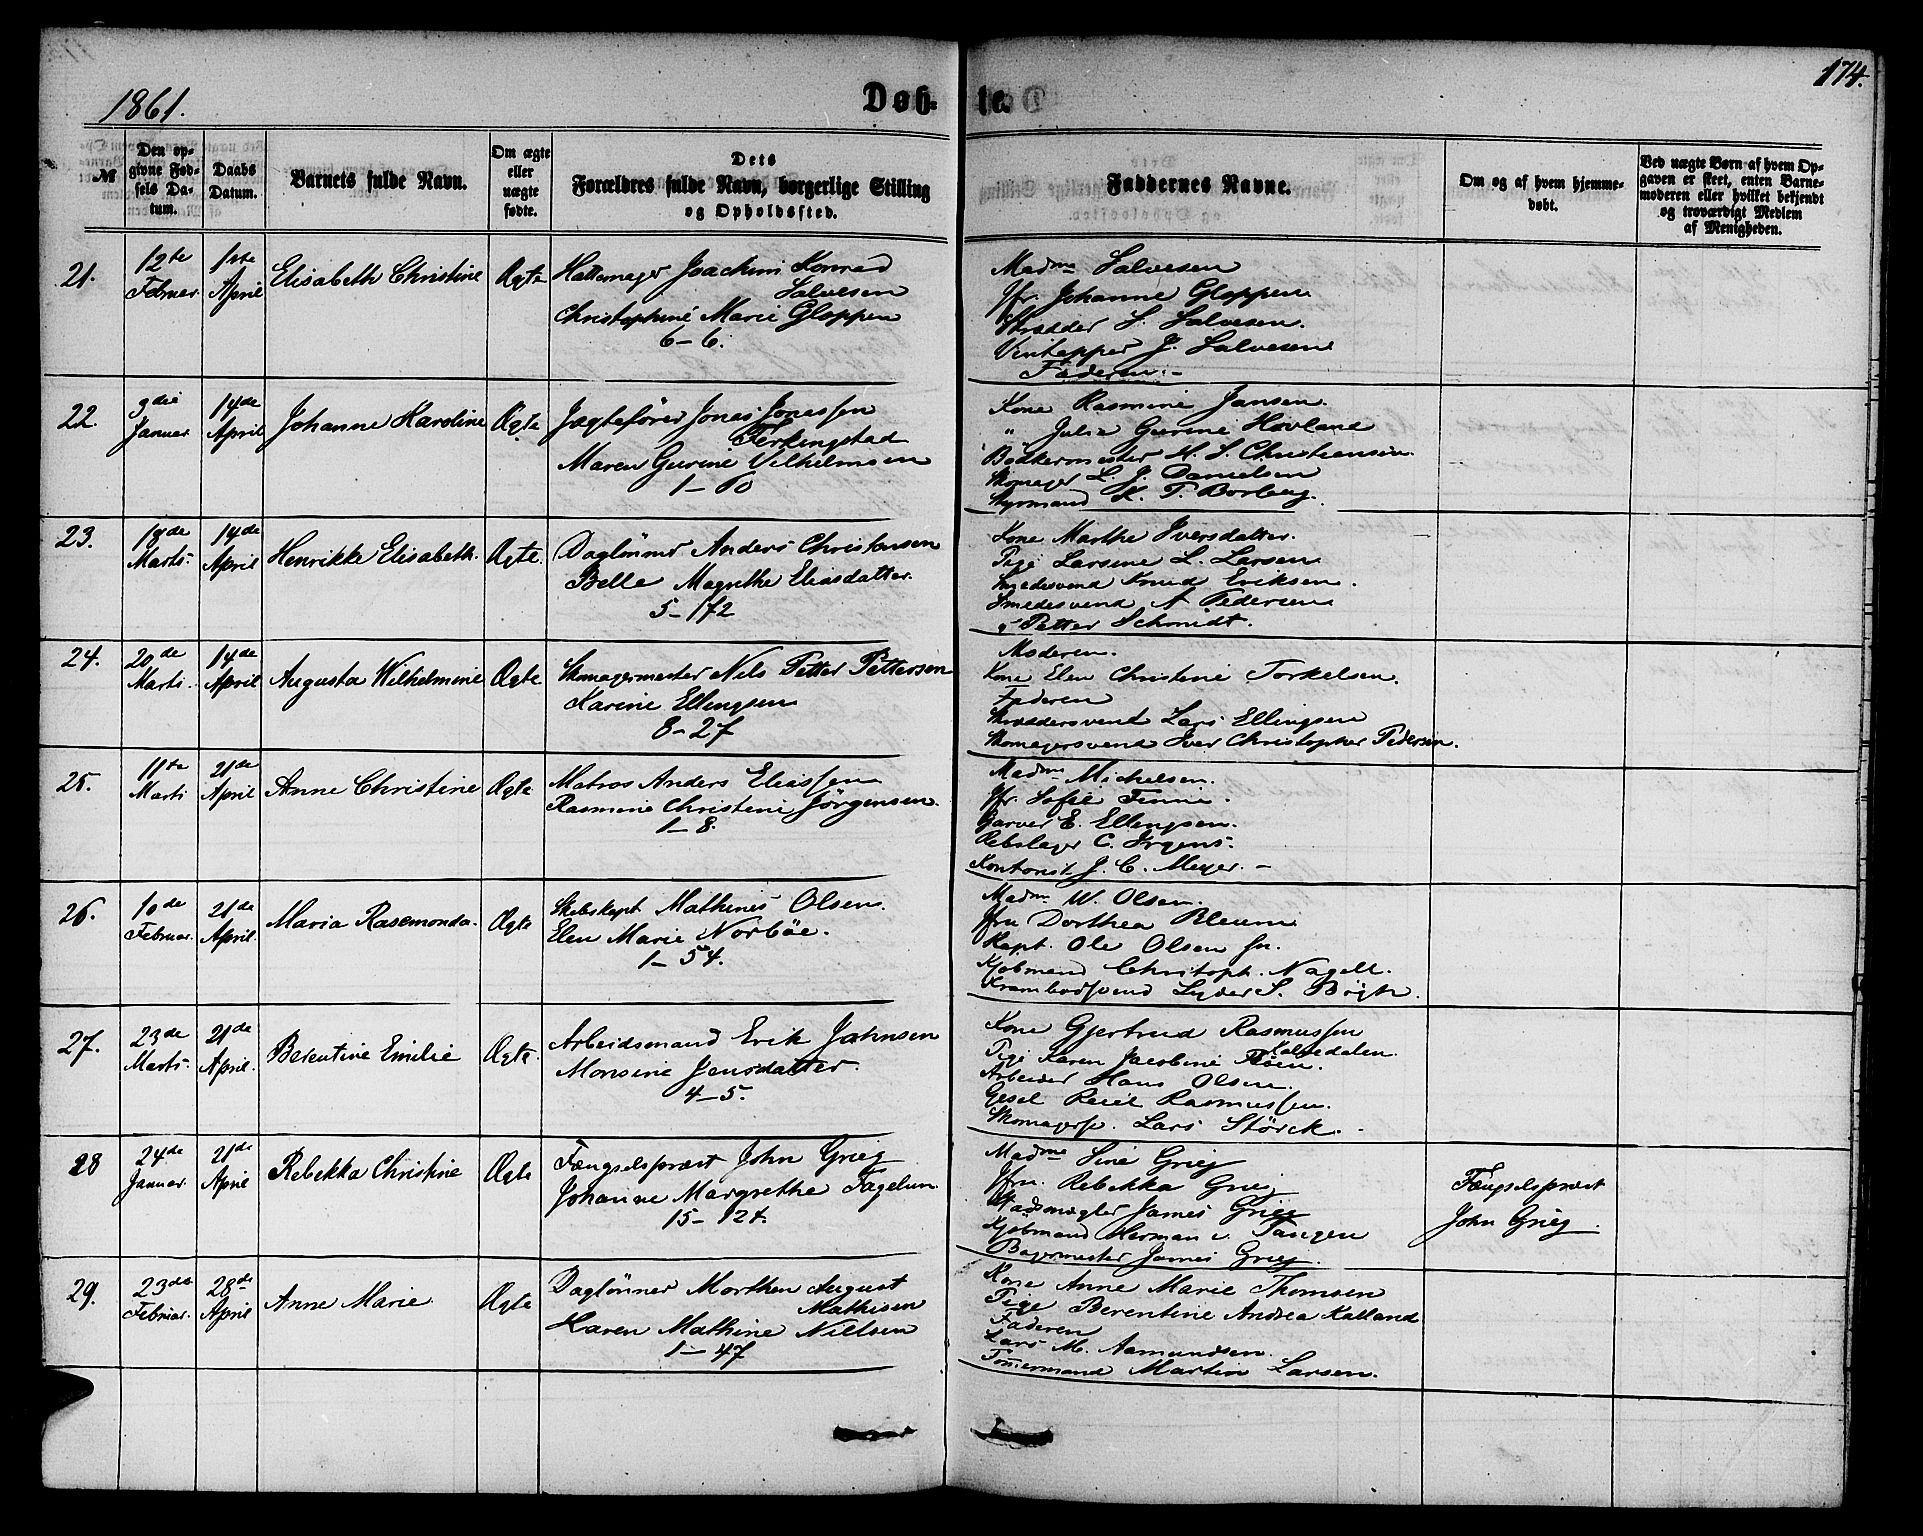 1861.
Døb-
te.
174.
№
Den op-
givne Fød-
sels Da-
tum.
Daabs
Datum.
Barnets fulde Navn.
Om ægte
eller
uægte
fødte.
Dets
Forældres fulde Navn, borgerlige Stilling
og Opholdssted.
Faddernes Navne.
Om og af hvem hjemme-
døbt.
Ved uægte Børn af hvem Op-
gaven er skeet, enten Barne-
moderen eller hvilket bekjendt
og troværdigt Medlem
af Menigheden.
21.
12te
Februar.
1ste
April
Elisabeth Christine
Ægte
Hattemager Joachim Konrad
Salvesen
Christophine Marie Gloppen
6-6.
Madme Salvesen
Jfr. Johanne Gloppen
Skrædder S. Salvesen.
Vintapper J. Salvesen
Faderen.-
22.
3die
Januar.
14de
April
Johanne Karoline
Ægte
Jagtefører Jonas Jonassen
Ferkingstad
Maren Gurine Vilhelmsen
1-60
Kone Rasmine Jansen.
" Julie Gurine Hovland
Bødkermester H. S. Christiensen
Skomager L. J. Danielsen
Styrmand K. T. Borberg.
23.
18de
Marts.
14de
April
Henrikke Elisabeth.
Ægte.
Daglønner Anders Christensen
Belle Magrethe Eliasdatter
5-172
Kone Marthe Iversdatter.
Pige Larsine L. Larsen
Smedesvend Knud Eriksen.
Smedesvend A Pedersen
" Petter Schmidt.
24.
20de
Marts.
14de
April
Augusta Wilhelmine
Ægte
Skomagermester Nils Petter Pettersen
Karine Ellingsen
8-27
Moderen.
Kone Elen Christine Torkelsen.
Faderen
Skræddersvend Lars Ellingsen
Skomagersvend Iver Christopher Pedersen.
25.
11te
Marts
21de
April
Anne Christine
Ægte
Matros Anders Eliassen
Rasmine Christine Jørgensen.
1-8.
Madme Michelsen.
Jfr. Sofie Finne.
Garver E. Ellingsen.
Rebslager C. Irgens.
Kontorist J. C. Meyer.-
26.
10de
Februar.
21de
April.
Maria Rasemonda.
Ægte
Skibskapt Mathines Olsen.
Elen Marie Norbøe.
1-54.
Madm W. Olsen.
Jfru Dorthea Bleum
Kapt. Ole Olsen sn.
Kjøbmand Christoph. Nagell.
Krambodsvend Lyder S. Bøgh.
27.
23de
Marts.
21de
April.
Berentine Emilie
Ægte.
Arbeidsmand Erik Johnsen
Monsine Jensdatter.
4-5.
Kone Gjertrud Rasmussen
Kalvedalen.
Pige Karen Jacobine Røen.
Arbeider Hans Olsen.
Gesel Reier Rasmussen.
Skomagersv. Lars Størck.-
28
24de
Januar.
21de
April
Rebekka Christine
Ægte
Fængselspræst John Grieg
Johanne Margrethe Fagelun
15-124.
Madme Sine Grieg
Jfru. Rebekka Grieg
Stadsmægler James Grieg
Kjøbmand Herman v. Tangen
Bagermester James Grieg.
Fængselspræst
John Grieg.
29.
23de
Februar.
28de
April
Anne Marie
Ægte
Daglønner Morthen August
Mathisen
Karen Mathine Nielsen
1-47
Kone Anne Marie Thomsen
Pige Berentine Andrea Kalland
Faderen
Lars M. Aamundsen.
Tømmermand Martin Larsen.